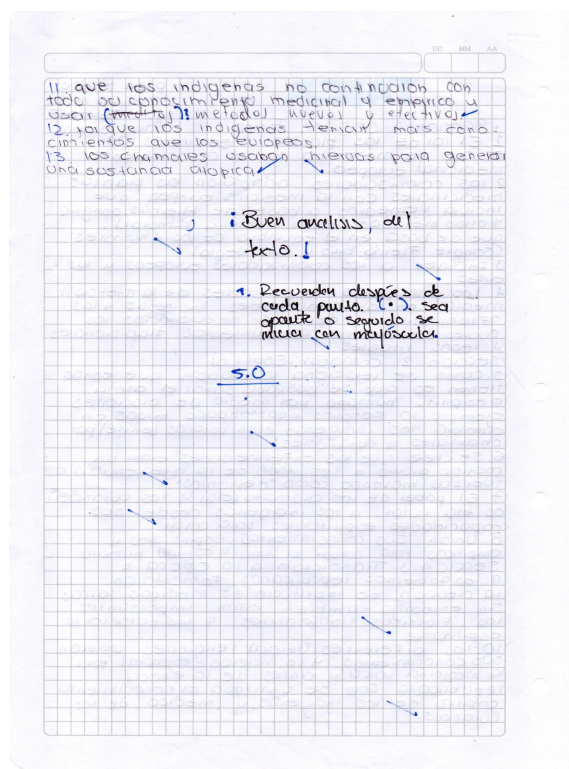 DD MM AA
11. que los indigenas no continuaron con
todo su conocimiento medicinal y empirico y
usar metodos nuevos y efectivos
12. ya que los indigenas tenian mas cono-
cimientos que los europeos.
13. los chamales usaban hiervas para generar
una sustancia
¡Buen analisis, del
texto.!
1. Recuerden despúes de
cada punto. (•). sea
aparte o seguido se
inicia con mayúscula.
5.0